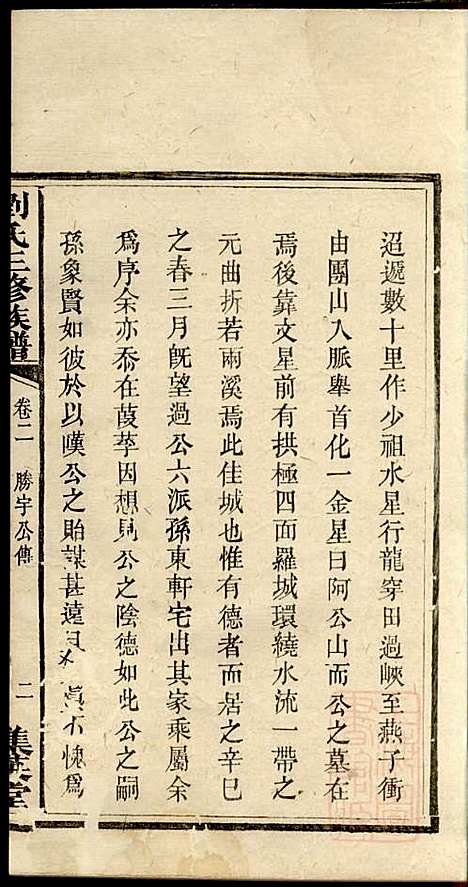 迢遞數十里作少祖水星行龍穿田過峽至燕子衝
由團山入脈舉首化一金星曰阿公山而公之墓在
焉後靠文星前有拱極四面羅城環繞水流一帶之
元曲折若兩溪焉此佳城也惟有德者而居之辛巳
之春三月旣望過公六派孫東軒宅出其家乘屬余
爲序余亦忝在葭莩因想見公之陰德如此公之嗣
孫象賢如彼於以嘆公之貽謀甚遠眞不愧爲
劉氏三修族譜
卷二
勝宇公傳
二
集英堂